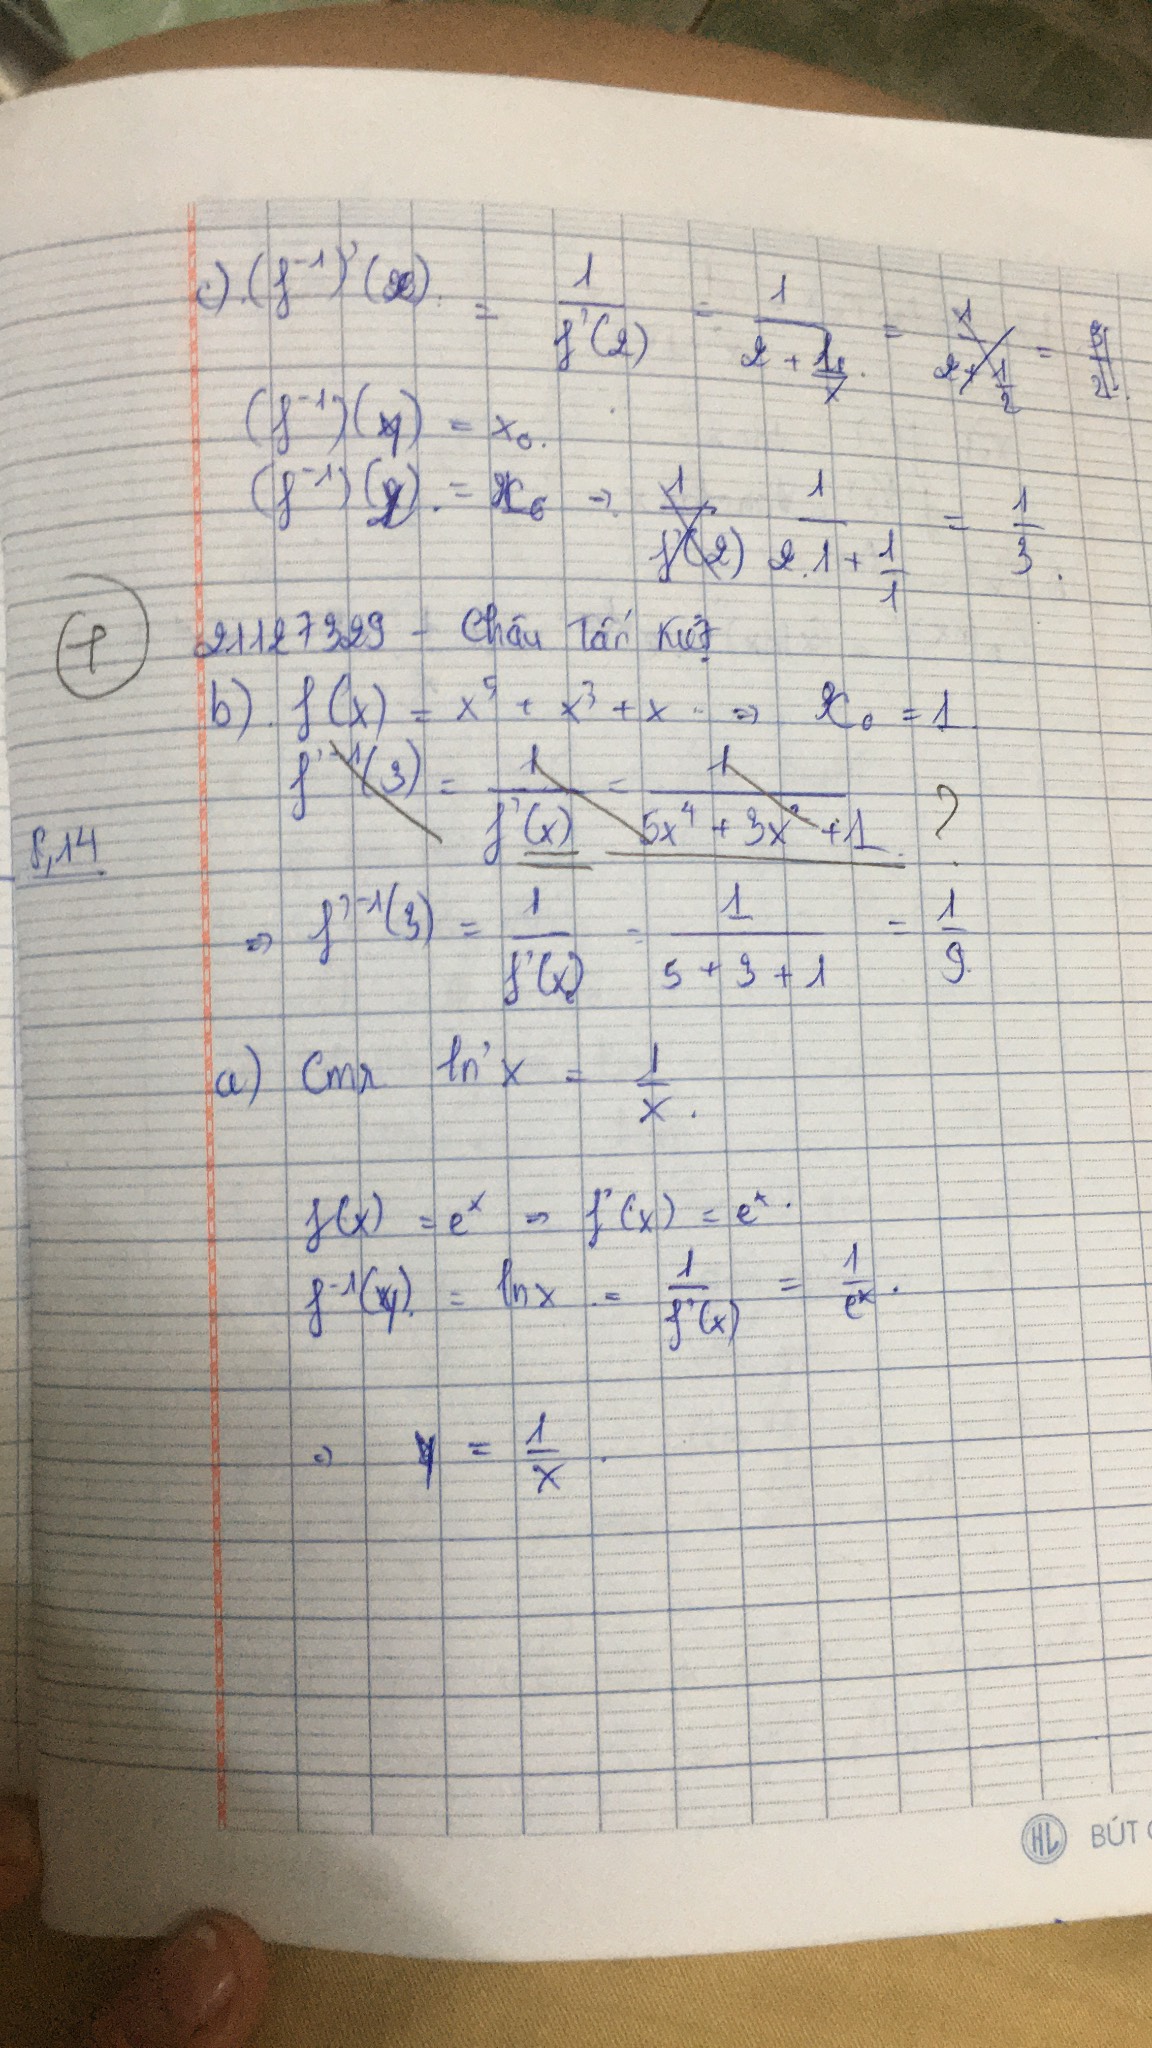 c). (f⁻¹)'(2) = 1/f'(2) = 1/(2 + 1/x) = 1/(2 + 1/2) =
(f⁻¹)(y) = x₀.
(f⁻¹)(2) = x₀ ⇒ 1/f'(2) 1/(2.1 + 1/1) = 1/3.
21127329 - Châu Tấn Kiệt
b). f(x) = x⁵ + x³ + x ⇒ x₀ = 1
f'⁻¹(3) = 1/f'(x) = 1/(5x⁴ + 3x² + 1) ?
8,14
⇒ f'⁻¹(3) = 1/f'(x) = 1/(5 + 3 + 1) = 1/9
a) Cmr ln'x = 1/x.
f(x) = eˣ ⇒ f'(x) = eˣ.
f⁻¹(y) = lnx = 1/f'(x) = 1/eˣ.
⇒ y = 1/x.
HL BÚT